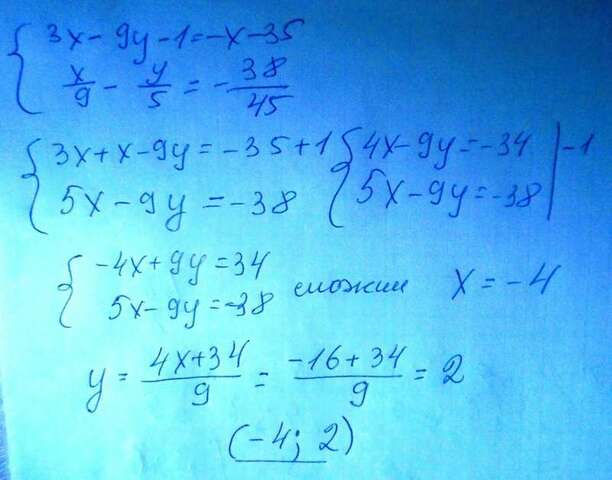 3x - 9y - 1 = -x - 35
x/9 - y/5 = -38/45
3x + x - 9y = -35 + 1 4x - 9y = -34 | -1
5x - 9y = -38 5x - 9y = -38
-4x + 9y = 34
5x - 9y = -38 сложим x = -4
y = (4x+34)/9 = (-16+34)/9 = 2
(-4; 2)